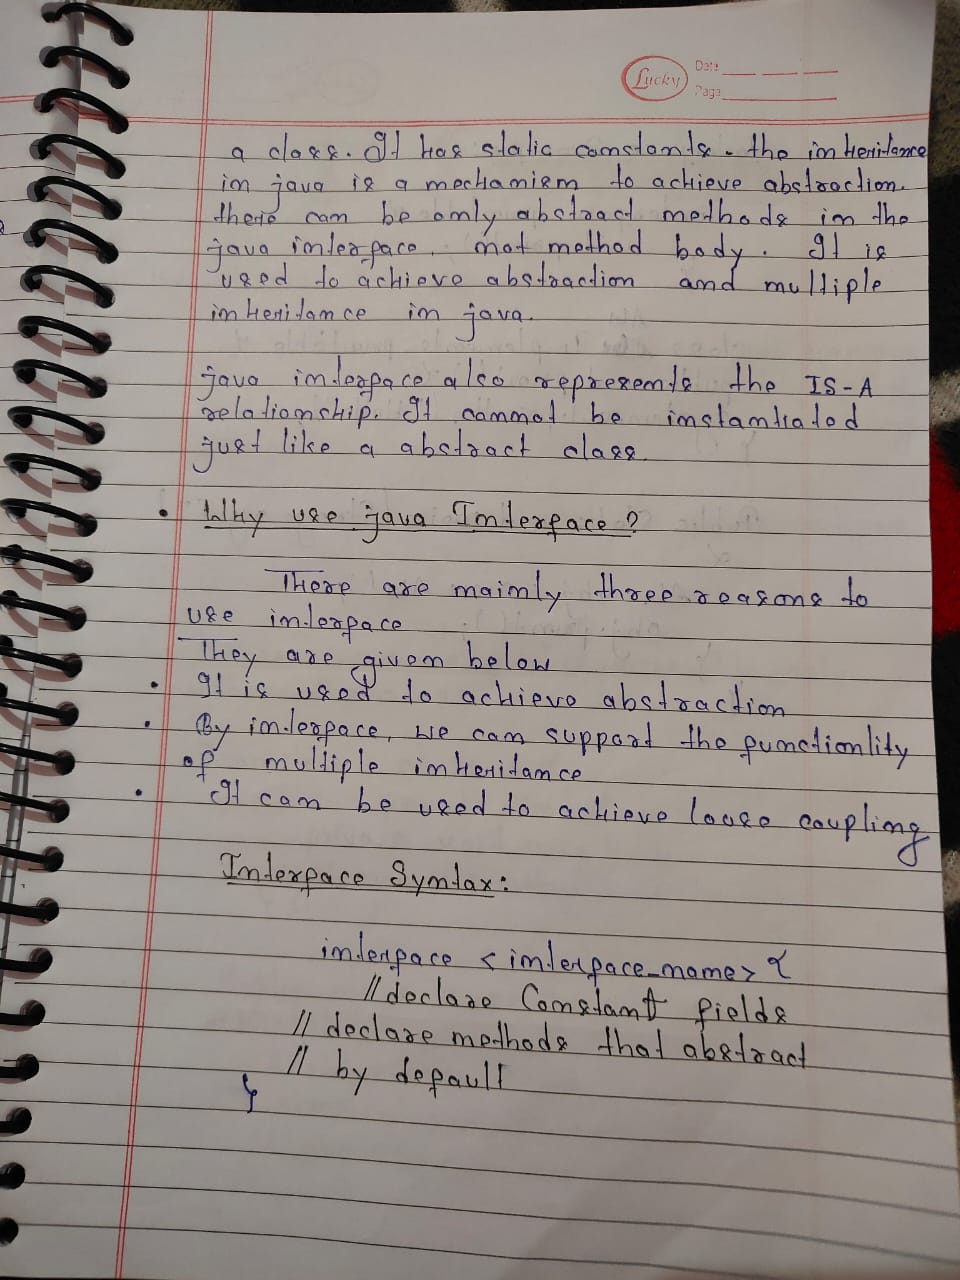 Lucky
Date
Page
a class. It has static constants. the inheritance
in java is a mechanism to achieve abstraction.
there can be only abstract methods in the
java interface. not method body. It is
used to achieve abstraction and multiple
inheritance in java.
java interface also represents the IS-A
relationship. It cannot be instantiated
just like a abstract class
• Why use java Interface?
There are mainly three reasons to
use interface
They are given below
• It is used to achieve abstraction
• By interface, we can support the functionlity
of multiple inheritance
• It can be used to achieve loose coupling
Interface Syntax:
interface <interface_name> {
// declare Constant fields
// declare methods that abstract
// by default
}